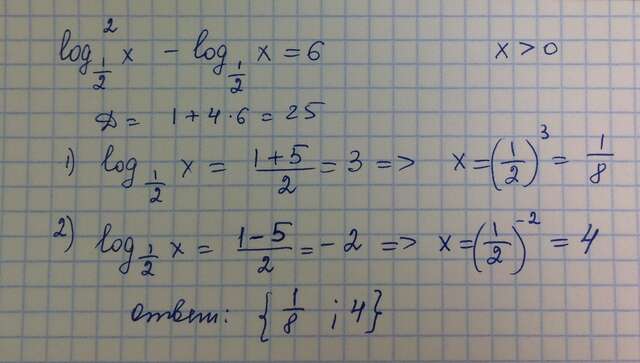 log²_{1/2} x − log_{1/2} x = 6 x > 0
D = 1 + 4 · 6 = 25
1) log_{1/2} x = (1+5)/2 = 3 => x = (1/2)^3 = 1/8
2) log_{1/2} x = (1−5)/2 = −2 => x = (1/2)^{−2} = 4
ответ: {1/8 ; 4}